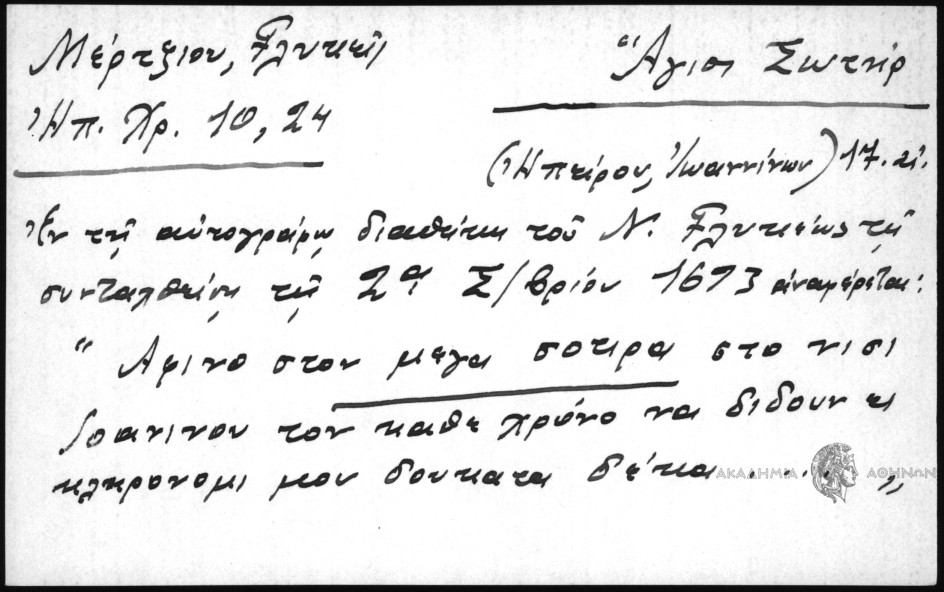 Μέρτζιου, Γλυκεῖς
Ἅγιος Σωτήρ
Ἠπ. Χρ. 10, 24
(Ἠπείρου, Ἰωαννίνων) 17. αἰ.
Ἐν τῇ αὐτογράφῳ διαθήκῃ τοῦ Ν. Γλυκέως τῇ
συνταχθείσῃ τῇ 2ᾳ Σ/βρίου 1693 ἀναφέρεται:
"Αφινο στον μεγα σοτιρα στο νισι
Ιοανινου τον καθε χρόνο να διδουν ει
κλιρονομι μου δουκατα δέκα ..... "
ΑΚΑΔΗΜΙΑ ΑΘΗΝΩΝ